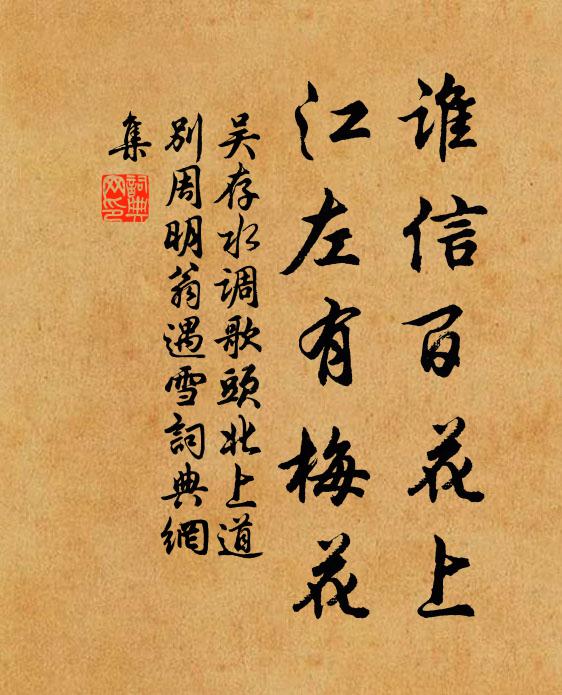 谁信百花上
江左有梅花
吴存水调歌头北上道
别周明翁遇雪词典網
集
詞典网印